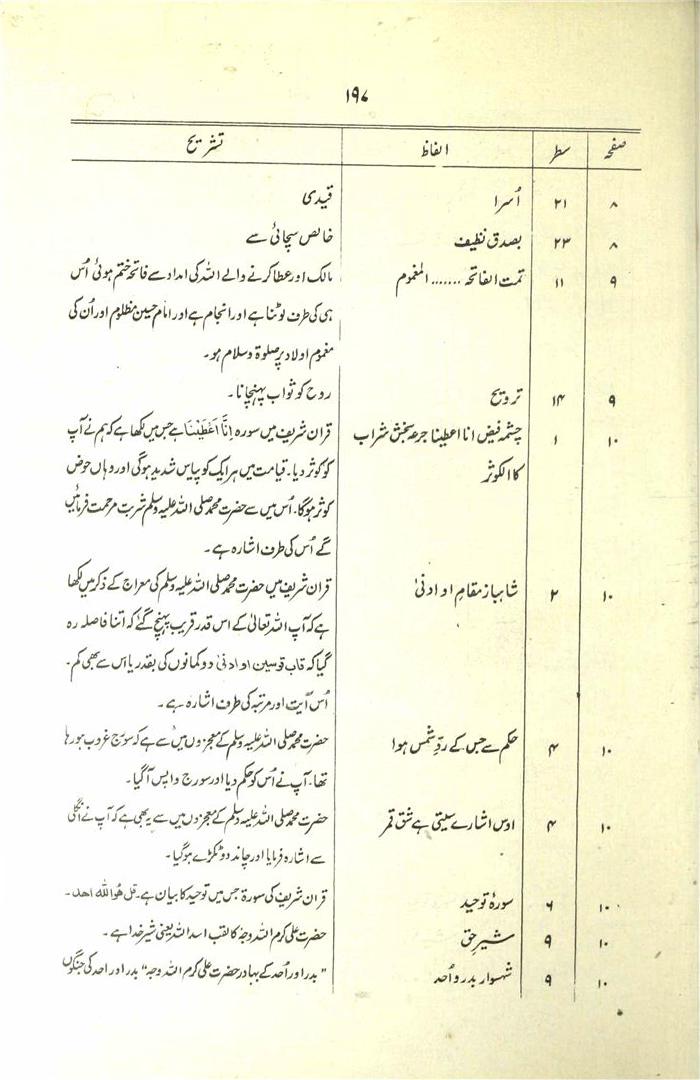 ۱۹۷
صفحہ سطر الفاظ تشریح
۸ ۲۱ اُسرا قیدی
۸ ۲۳ بصدق نظیف خالص سچائی سے
۹ ۱۱ تمت الفاتحہ ....... المغموم مالک اور عطا کرنے والے اللہ کی امداد سے فاتحہ ختم ہوئی اُس
ہی کی طرف لوٹنا ہے اور انجام ہے اور امام حسین مظلوم اور اُن کی
مغموم اولاد پر صلوۃ و سلام ہو۔
۹ ۱۴ ترویح روح کو ثواب پہنچانا۔
۱۰ ۱ چشمہ فیض انا اعطینا جرعہ بخش شراب قران شریف میں سورہ اِنَّا اَعْطَیْنَا ہے جس میں لکھا ہے کہ ہم نے آپ
کا الکوثر کو کوثر دیا۔ قیامت میں ہر ایک کو پیاس شدید ہوگی اور وہاں حوض
کوثر ہوگا۔ اُس میں سے حضرت محمد صلی اللہ علیہ وسلم شربت مرحمت فرمائیں
گے اُس کی طرف اشارہ ہے۔
۱۰ ۲ شاہباز مقامِ او ادنیٰ قران شریف میں حضرت محمد صلی اللہ علیہ وسلم کی معراج کے ذکر میں لکھا
ہے کہ آپ اللہ تعالیٰ کے اس قدر قریب پہنچ گئے کہ اتنا فاصلہ رہ
گیا کہ قاب قوسین او ادنیٰ دو کمانوں کی بقدر یا اس سے بھی کم۔
اُس آیت اور مرتبہ کی طرف اشارہ ہے۔
۱۰ ۴ حکم سے جس کے ردِّ شمس ہوا حضرت محمد صلی اللہ علیہ وسلم کے معجزوں میں سے ہے کہ سورج غروب ہو رہا
تھا۔ آپ نے اُس کو حکم دیا اور سورج واپس آ گیا۔
۱۰ ۴ اوس اشارے سیتی ہے شق قمر حضرت محمد صلی اللہ علیہ وسلم کے معجزوں میں سے یہ بھی ہے کہ آپ نے انگلی
سے اشارہ فرمایا اور چاند دو ٹکڑے ہو گیا۔
۱۰ ۶ سورۂ توحید قران شریف کی سورۃ جس میں توحید کا بیان ہے۔ قل ھو اللہ احد۔
۱۰ ۹ شیرِ حق حضرت علی کرم اللہ وجہ کا لقب اسد اللہ یعنی شیر خدا ہے۔
۱۰ ۹ شہسوار بدر و اُحد "بدر اور اُحد کے بہادر حضرت علی کرم اللہ وجہ" بدر اور احد کی جنگوں